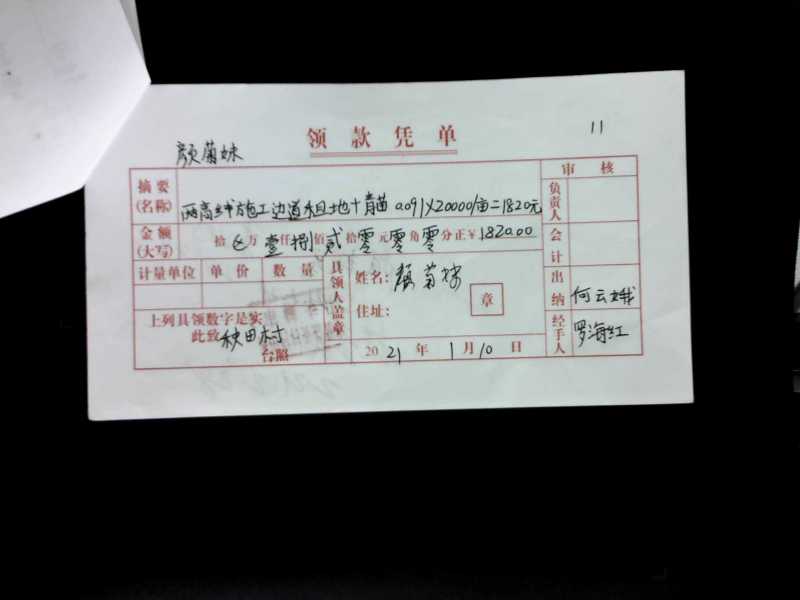 领款凭单
11
颜菊妹
审核
摘要(名称) 两高线施工边道租地+青苗 0.091×20000/亩=1820元
负责人
金额(大写) 拾 万壹仟捌佰贰拾零元零角零分正¥1820.00
会计
计量单位 单价 数量
具领人盖章
姓名: 颜菊妹
住址:
章
出纳 何云娥
上列具领数字是实
此致 秧田村
台照
2021年1月10日
经手人 罗海红